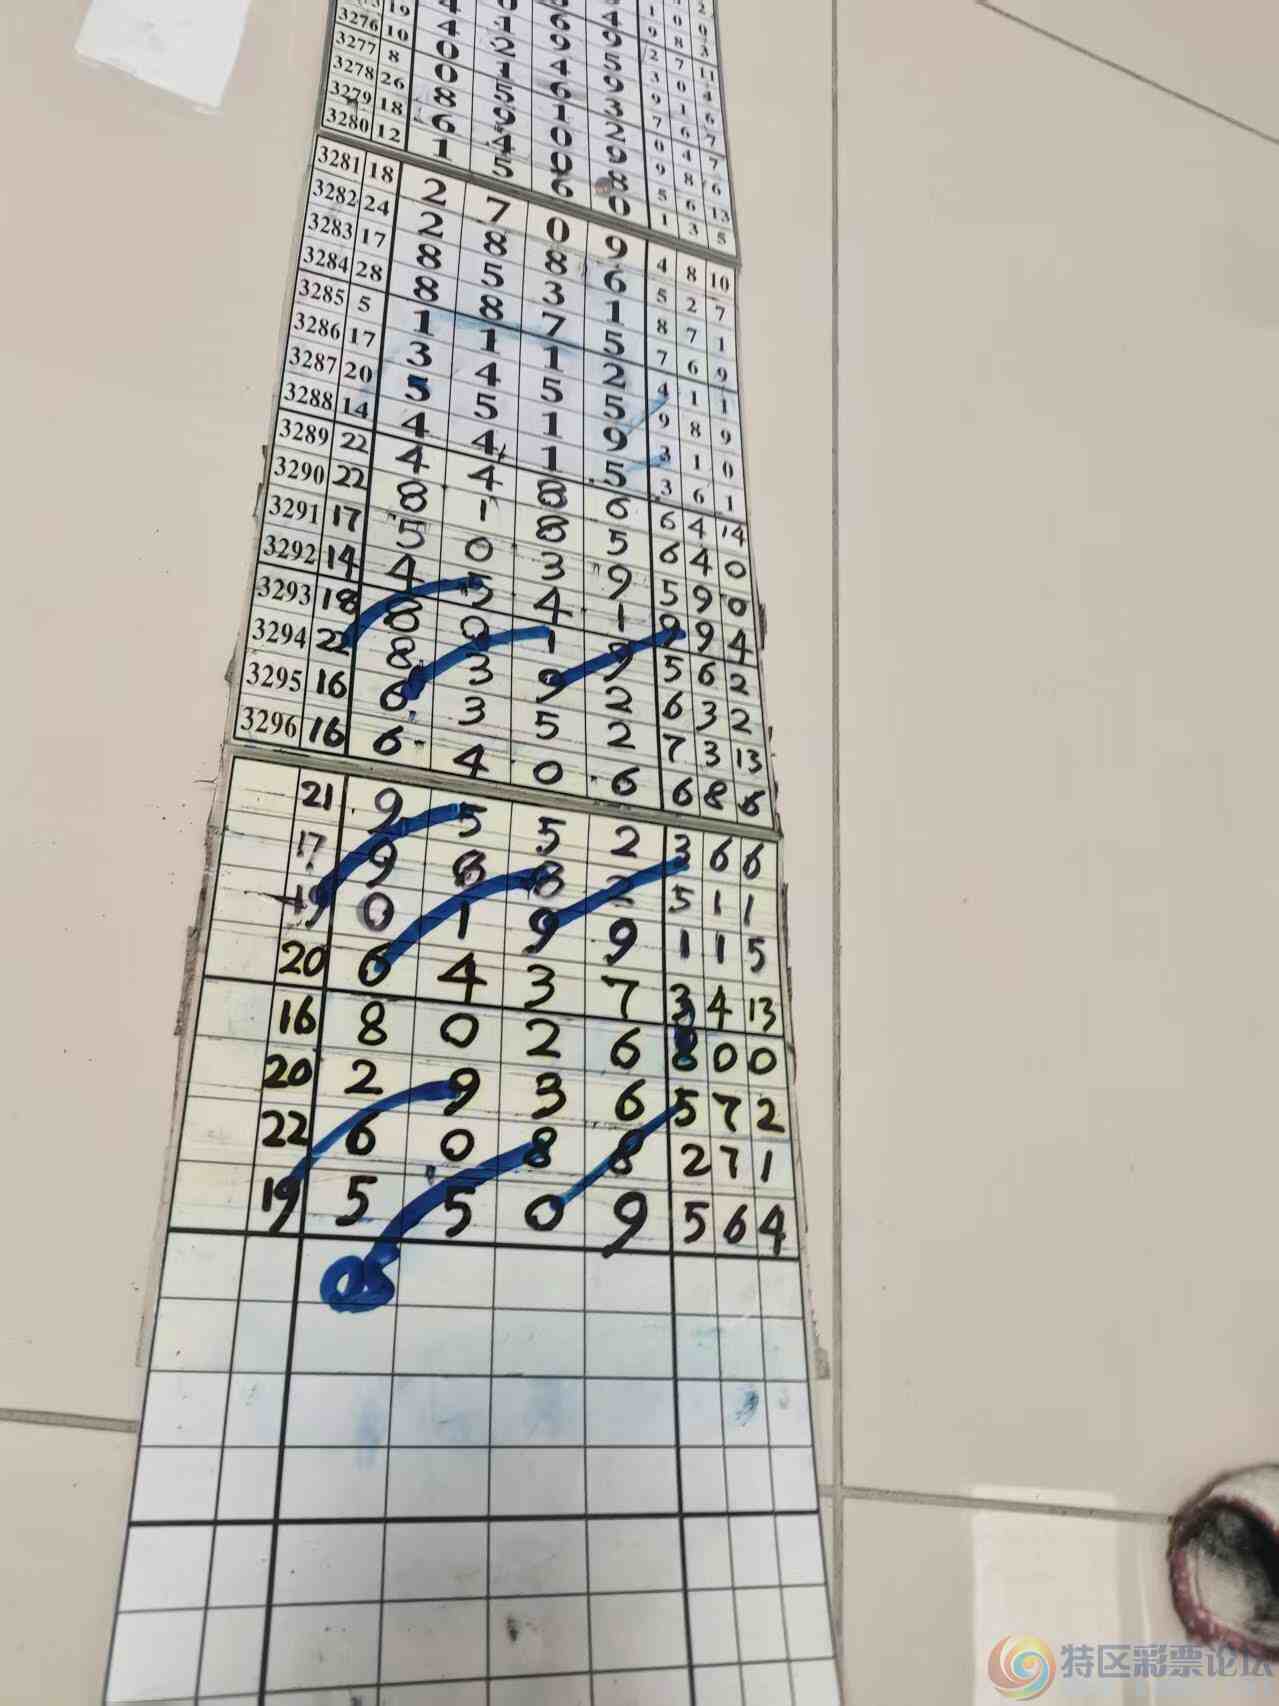 19 4 2 4 9 9 1 6
3276 10 0 1 6 3 7 6 7
3277 8 0 5 1 2 0 4 7
3278 26 8 9 0 9 9 8 6
3279 18 6 4 0 8 5 6 13
3280 12 1 5 6 0 1 3 5
3281 18 2 7 0 9 4 8 10
3282 24 2 8 8 6 5 2 7
3283 17 8 5 3 1 8 7 1
3284 28 8 8 7 5 7 6 9
3285 5 1 1 1 2 4 1 1
3286 17 3 4 5 5 9 8 9
3287 20 5 5 1 9 3 1 0
3288 14 4 4 1 5 3 6 1
3289 22 4 4 8 6 6 4 14
3290 22 8 1 8 5 6 4 0
3291 17 5 0 3 9 5 9 0
3292 14 4 5 4 1 9 9 4
3293 18 8 0 1 9 5 6 2
3294 22 8 3 9 2 6 3 2
3295 16 6 3 5 2 7 3 13
3296 16 6 4 0 6 6 8 6
21 9 5 5 2 3 6 6
17 9 8 8 2 5 1 1
19 0 1 9 9 1 1 5
20 6 4 3 7 3 4 13
16 8 0 2 6 8 0 0
20 2 9 3 6 5 7 2
22 6 0 8 8 2 7 1
19 5 5 0 9 5 6 4
05
特区彩票论坛